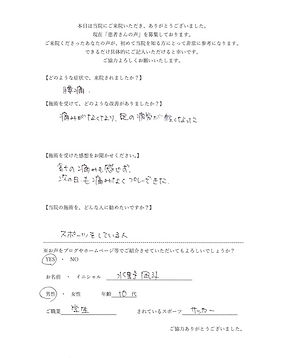 本日は当院にご来院いただき、ありがとうございました。
現在「患者さんの声」を募集しております。
ご来院くださったあなたの声が、初めて当院を知る方にとって非常に参考になります。
できるだけ具体的にご記入いただけると幸いです。
ご協力よろしくお願いいたします。
【どのような症状で、来院されましたか？】
腰痛
【施術を受けて、どのような改善がありましたか？】
痛みがなくなり、足の疲労が軽くなった
【施術を受けた感想をお聞かせください。】
針の痛みも感じず、
次の日も痛みなくプレーできた。
【当院の施術を、どんな人に勧めたいですか？】
スポーツをしている人
※お声をブログやホームページ等でご紹介させていただいてもよろしいでしょうか？
YES ・ NO
お名前 ・ イニシャル 水野
男性 ・ 女性 年齢 10代
ご職業 学生 されているスポーツ サッカー
ご協力ありがとうございました。